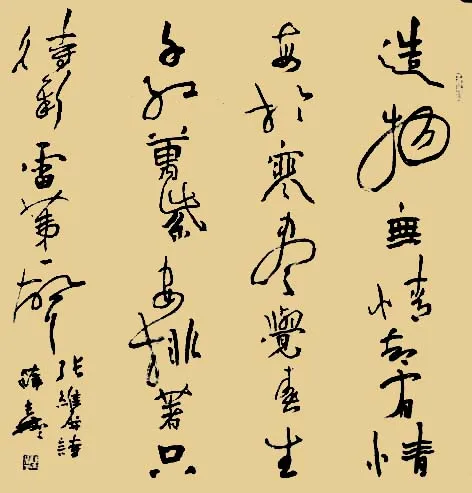 造物無情却有情
每於寒盡覺春生
千紅萬紫安排著只
待新雷第一聲
張維屏詩